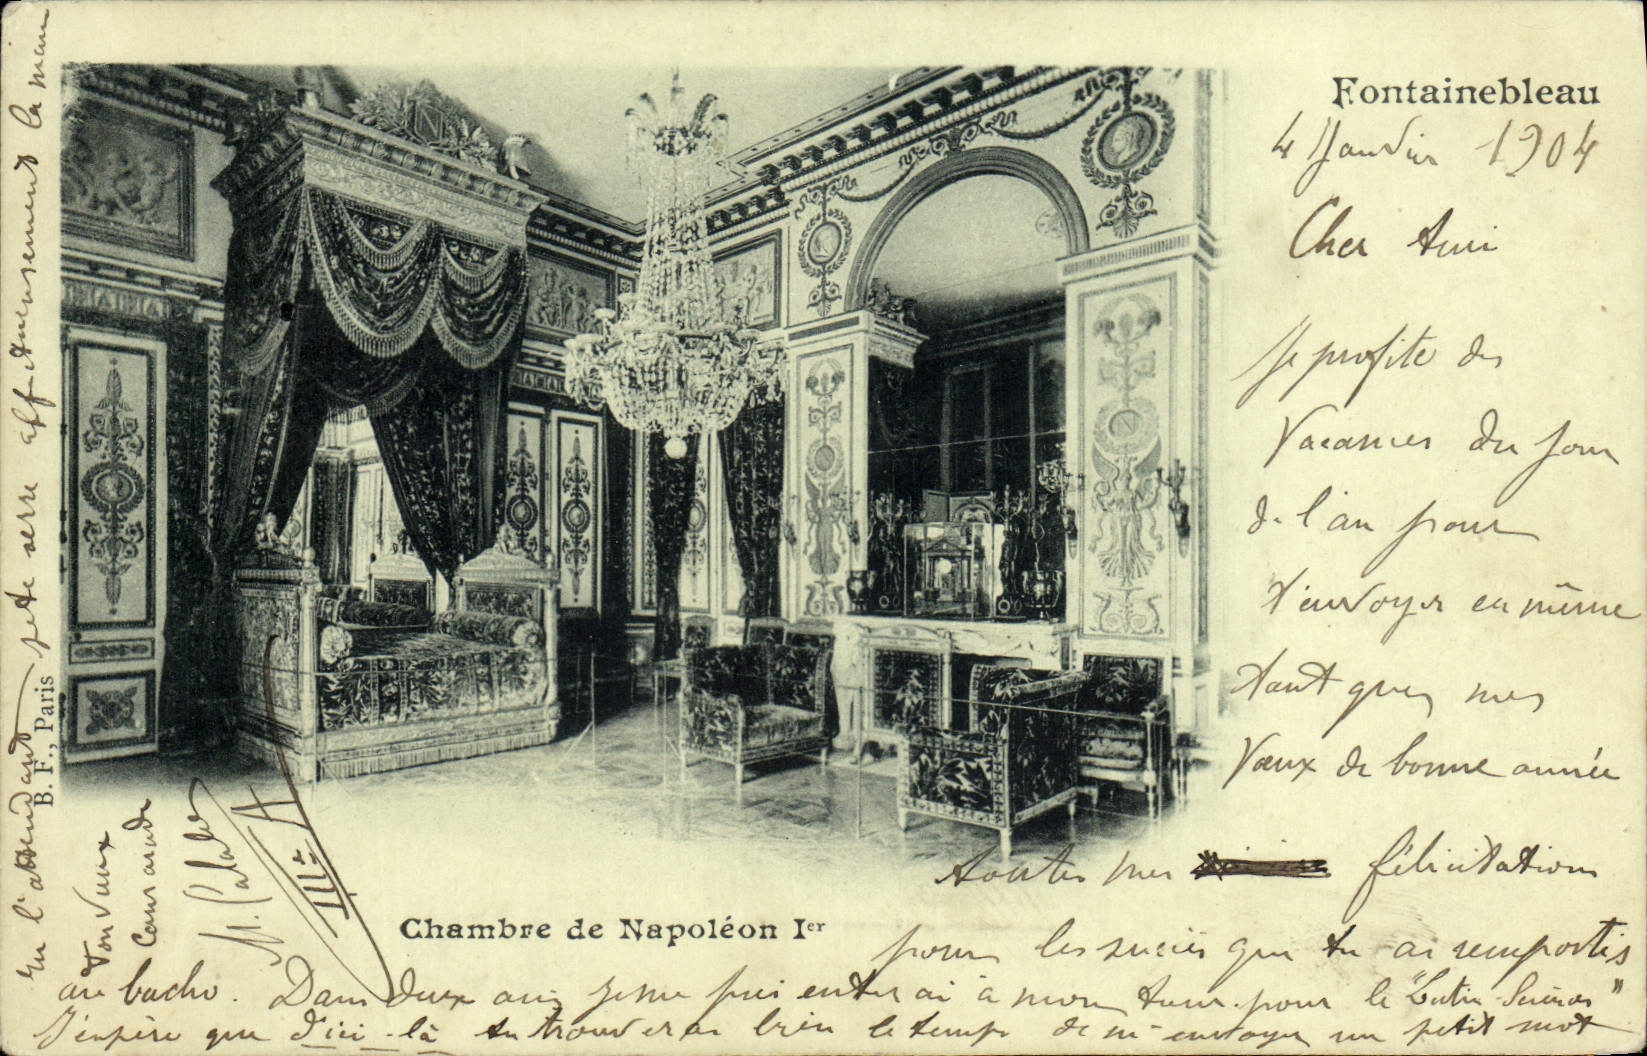 Fontainebleau
4 Janvier 1904
Cher Ami
Je profite des
Vacances du jour
de l'an pour
t'envoyer en même
tant que mes
Vœux de bonne année
toutes mes félicitations
pour les succès que tu as remportés
au bacho. Dans deux ans je me présenterai à mon tour pour le "Latin-Sciences"
J'espère que d'ici-là tu trouveras bien le temps de m'envoyer un petit mot
En l'attendant je te serre affectueusement la main
Ton Vieux
Camarade
Chambre de Napoléon Ier
B. F., Paris